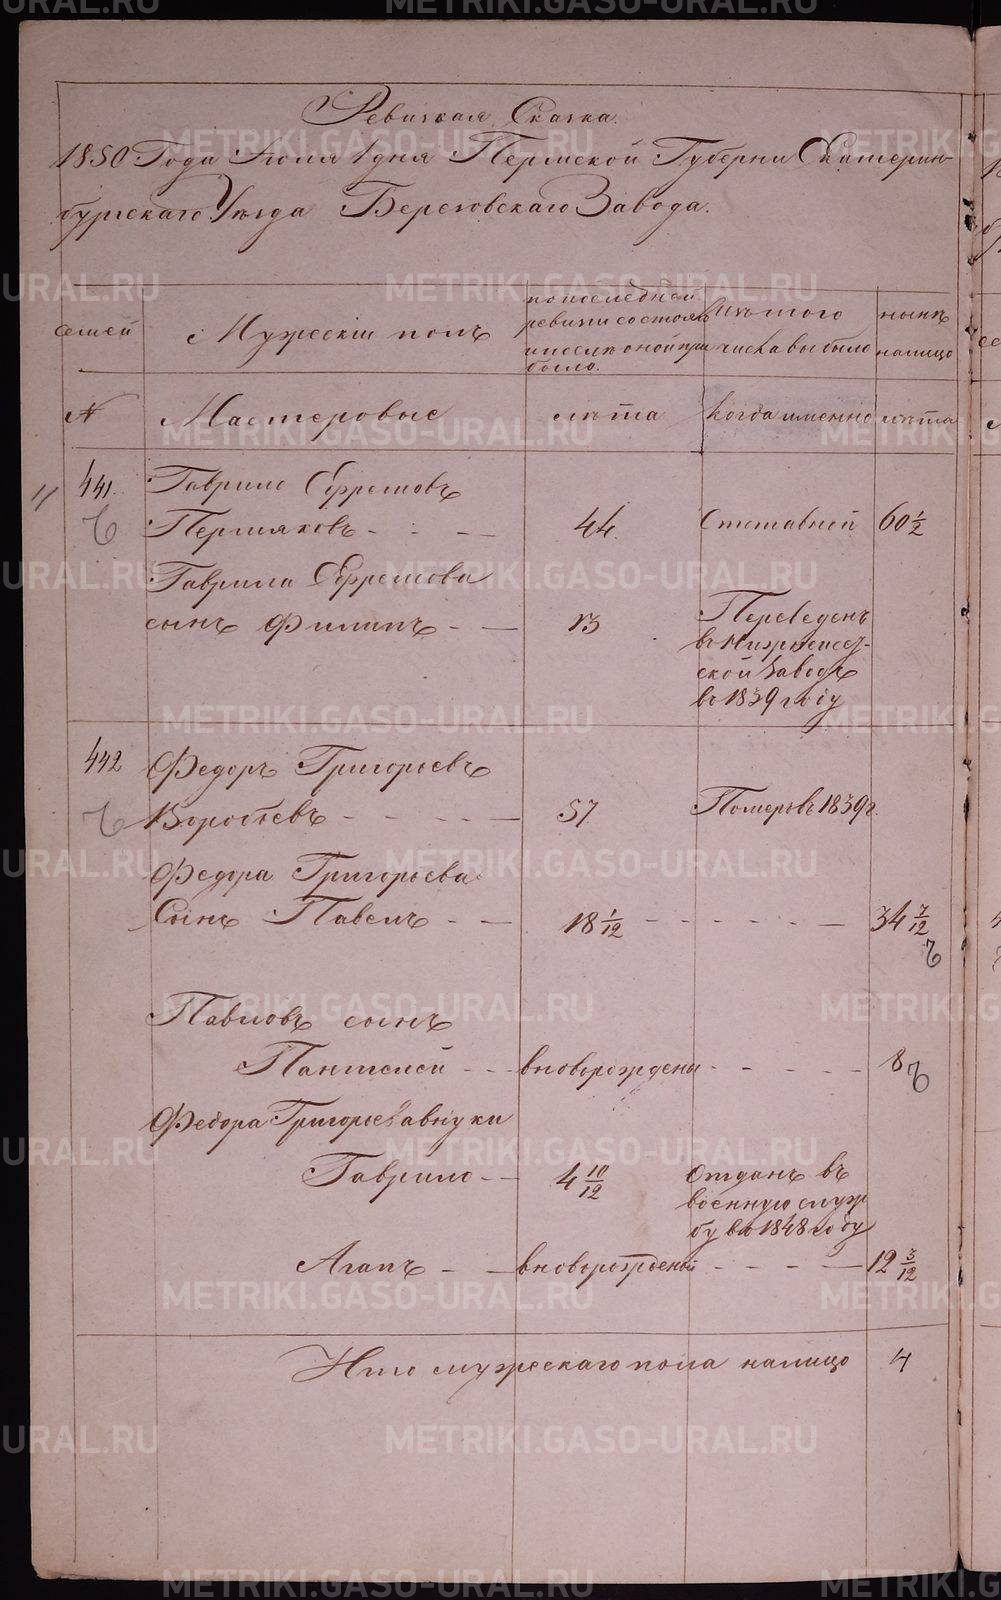 Ревизкая Сказка.
1850 Года Июля 1 дня Пермской Губерни Екатерин-
бургскаго Уезда Березовскаго Завода.
семей
Мужескiи полъ
по последней
ревизи состояло
и после оной при
было.
Изъ того
числа выбыло
ныне
налицо
№
Мастеровые
лѣта
Когда именно
лѣта
441.
Гаврило Ефремовъ
Пермяковъ - - - -
44.
Отставной
60 1/2
Гаврила Ефремова
сынъ Филипъ - —
13
Переведенъ
въ Нижнеисет-
ской Заводъ
въ 1839 году
442
Федоръ Григорьевъ
Воробьевъ - - - - —
57
Померъ въ 1839 г.
Федора Григорьева
Сынъ Павелъ - —
18 1/12 - - - - - —
34 7/12
Павловъ сынъ
Пантелей - - -
вноворождены - - - - -
8
Федора Григорьева внуки
Гаврило - -
4 10/12
Отданъ въ
военную служ
бу въ 1848 году
Агапъ - -
вноворожденый - - - - —
12 3/12
Итго мужескаго пола налицо
4
METRIKI.GASO-URAL.RU